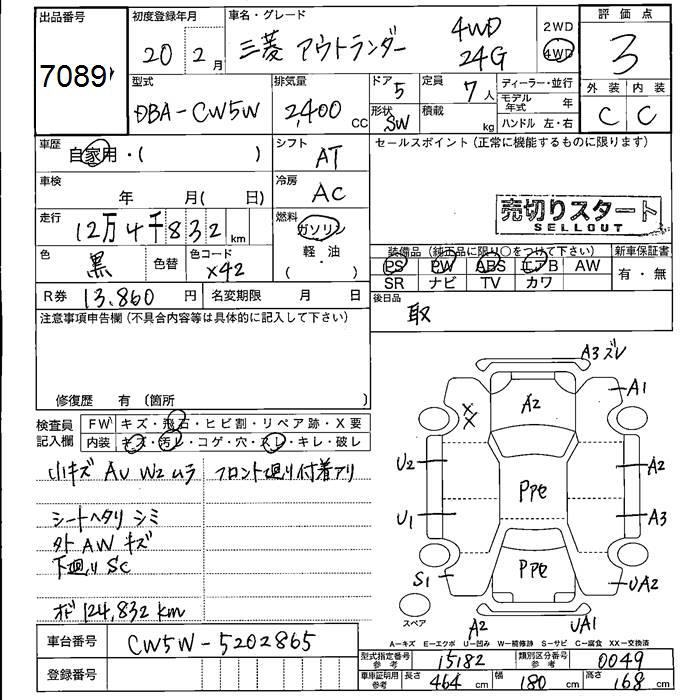 出品番号
7089
初度登録年月
20年2月
車名・グレード
三菱 アウトランダー 4WD 24G
2WD
4WD
評価点
3
外装 内装
C C
型式
DBA-CW5W
排気量
2,400 CC
ドア 5
形状 SW
定員 7人
積載 kg
ディーラー・並行
モデル年式 年
ハンドル 左・右
車歴
自家用・( )
シフト
AT
セールスポイント(正常に機能するものに限ります)
車検
年 月( 日)
冷房
AC
売切りスタート
SELLOUT
走行
12万4千832km
燃料
ガソリン
軽・油
( )
色
黒
色替
色コード
X42
装備品(純正品に限り○をつけて下さい)
新車保証書
PS PW ABS エアB AW
SR ナビ TV カワ
有・無
R券 13,860円
名変期限 月 日
後日品
取
注意事項申告欄(不具合内容等は具体的に記入して下さい)
修復歴 有〔箇所
検査員記入欄
FW キズ・飛石・ヒビ割・リペア跡・X要
内装 キズ・汚レ・コゲ・穴・スレ・キレ・破レ
小キズ AU W2 ムラ
フロント廻り付着アリ
シートヘタリ シミ
タト AW キズ
下廻り SC
オド 124,832 km
A3 ズレ
A1
A2
XX
U2
A2
PPC
U1
A3
S1
PPC
UA2
スペア
A2
UA1
A-キズ E-エクボ U-凹み W-補修跡 S-サビ C-腐食 XX-交換済
車台番号
CW5W-5202865
登録番号
型式指定番号 参考
15182
類別区分番号 参考
0049
車庫証明用 参考
長さ 464 cm
幅 180 cm
高さ 168 cm